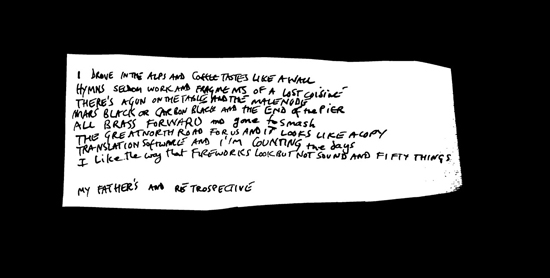 I DROVE IN THE ALPS AND COFFEE TASTES LIKE A WALL
HYMNS SELDOM WORK AND FRAGMENTS OF A LOST CUISINE
THERE'S A GUN ON THE TABLE AND THE MALE NODE
MARS BLACK OR CARBON BLACK AND THE END OF the PIER
ALL BRASS FORWARD AND gone to smash
THE GREAT NORTH ROAD FOR US AND IT LOOKS LIKE A COPY
TRANSLATION SOFTWARE AND I'M COUNTING the days
I Like the way that FIREWORKS LOOK BUT NOT SOUND AND FIFTY THINGS
MY FATHER'S AND RETROSPECTIVE